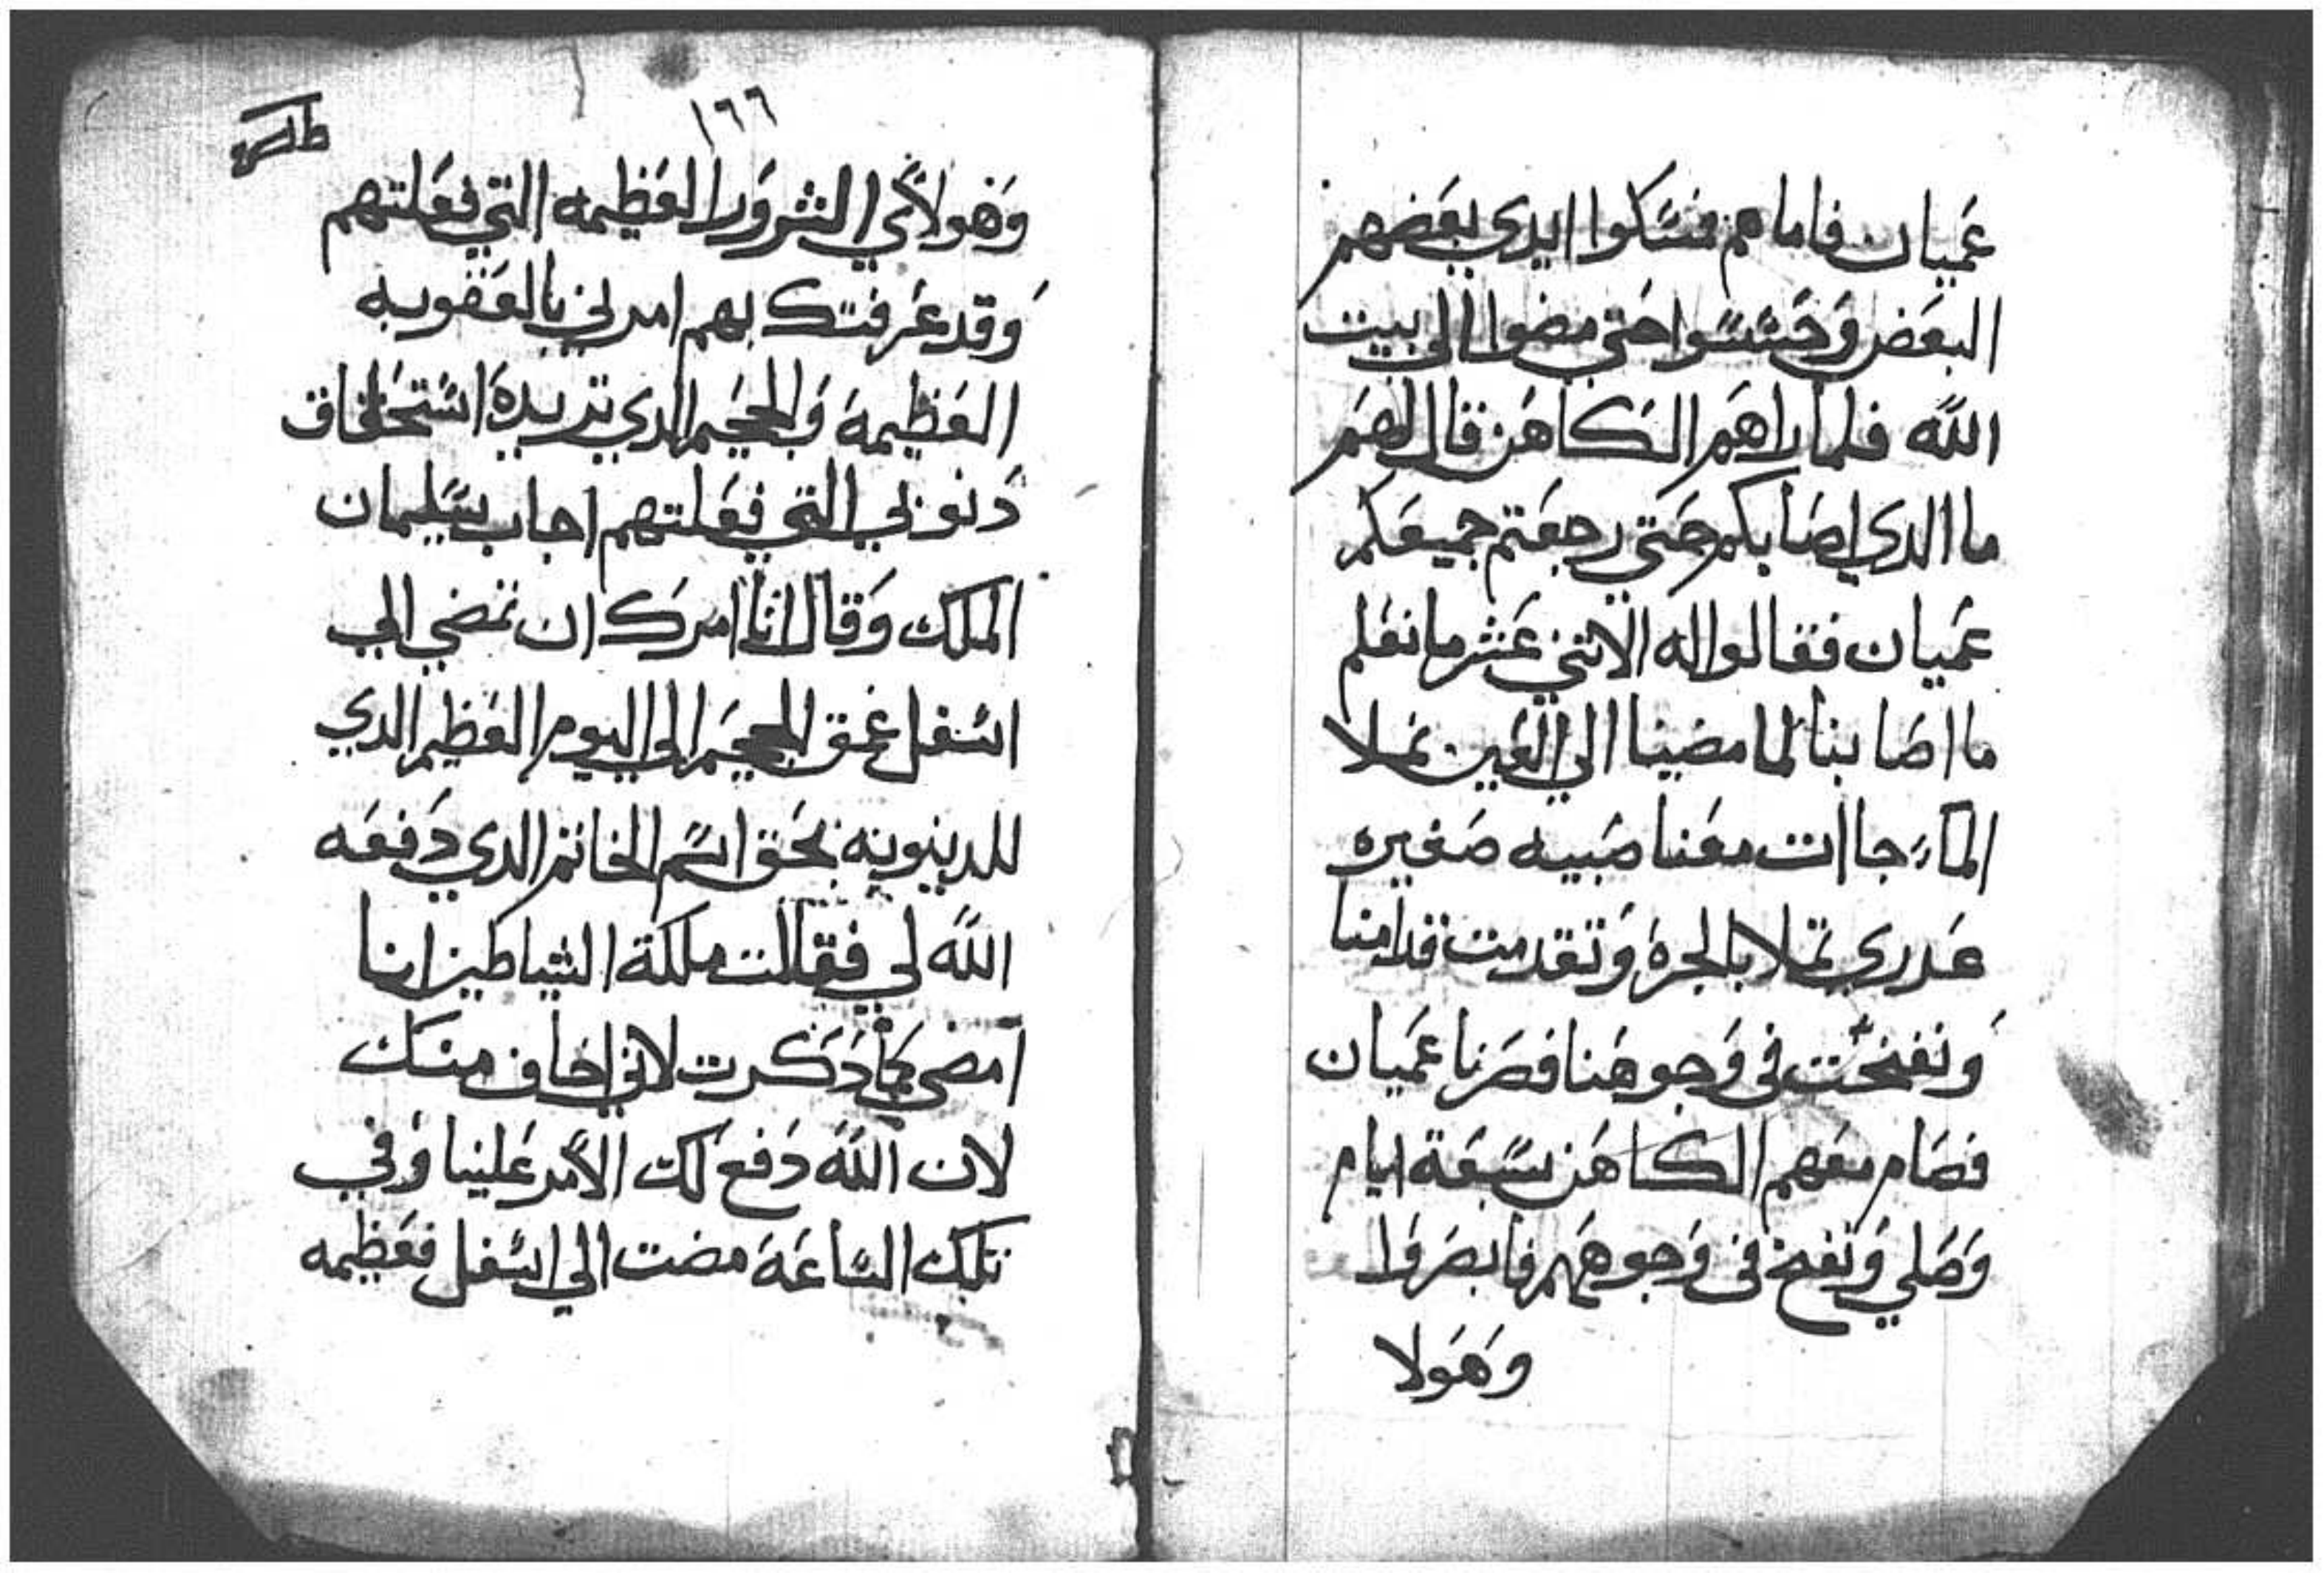 عميان فاما هم فمسكوا ايدي بعضهم
البعض وحسسوا حتى مضوا الى بيت
الله فلما راهم الكاهن قال لهم
ما الدي اصابكم حتي رجعتم جميعكم
عميان فقالوا له الاتني عشر ما نعلم
ما اصابنا لما مضينا الي العين نملا
الماء جاات معنا صبيه صغيره
عدري تملا بالجرة وتقدمت قدامنا
ونفخت في وجوهنا فصرنا عميان
فصام معهم الكاهن سبعة ايام
وصلي ونفخ في وجوههم فابصروا
وهولا
١٦٦
وهولاي الشرور العظيمه التي فعلتهم
وقد عرفتك بهم امرني بالعقوبه
العظيمة والجحيم الدي تريدة استحقاق
دنوبي التي فعلتهم اجاب سليمان
الملك وقال انا امرك ان تمضي الي
اسفل عمق الجحيم الي اليوم العظيم الدي
للدينونه بحق اسم الخاتم الدي دفعه
الله لي فقالت ملكة الشياطين انا
امضي كما دكرت لاني اخاف منك
لان الله دفع لك الامر علينا وفي
تلك الساعة مضت الي اسفل فعظيمه